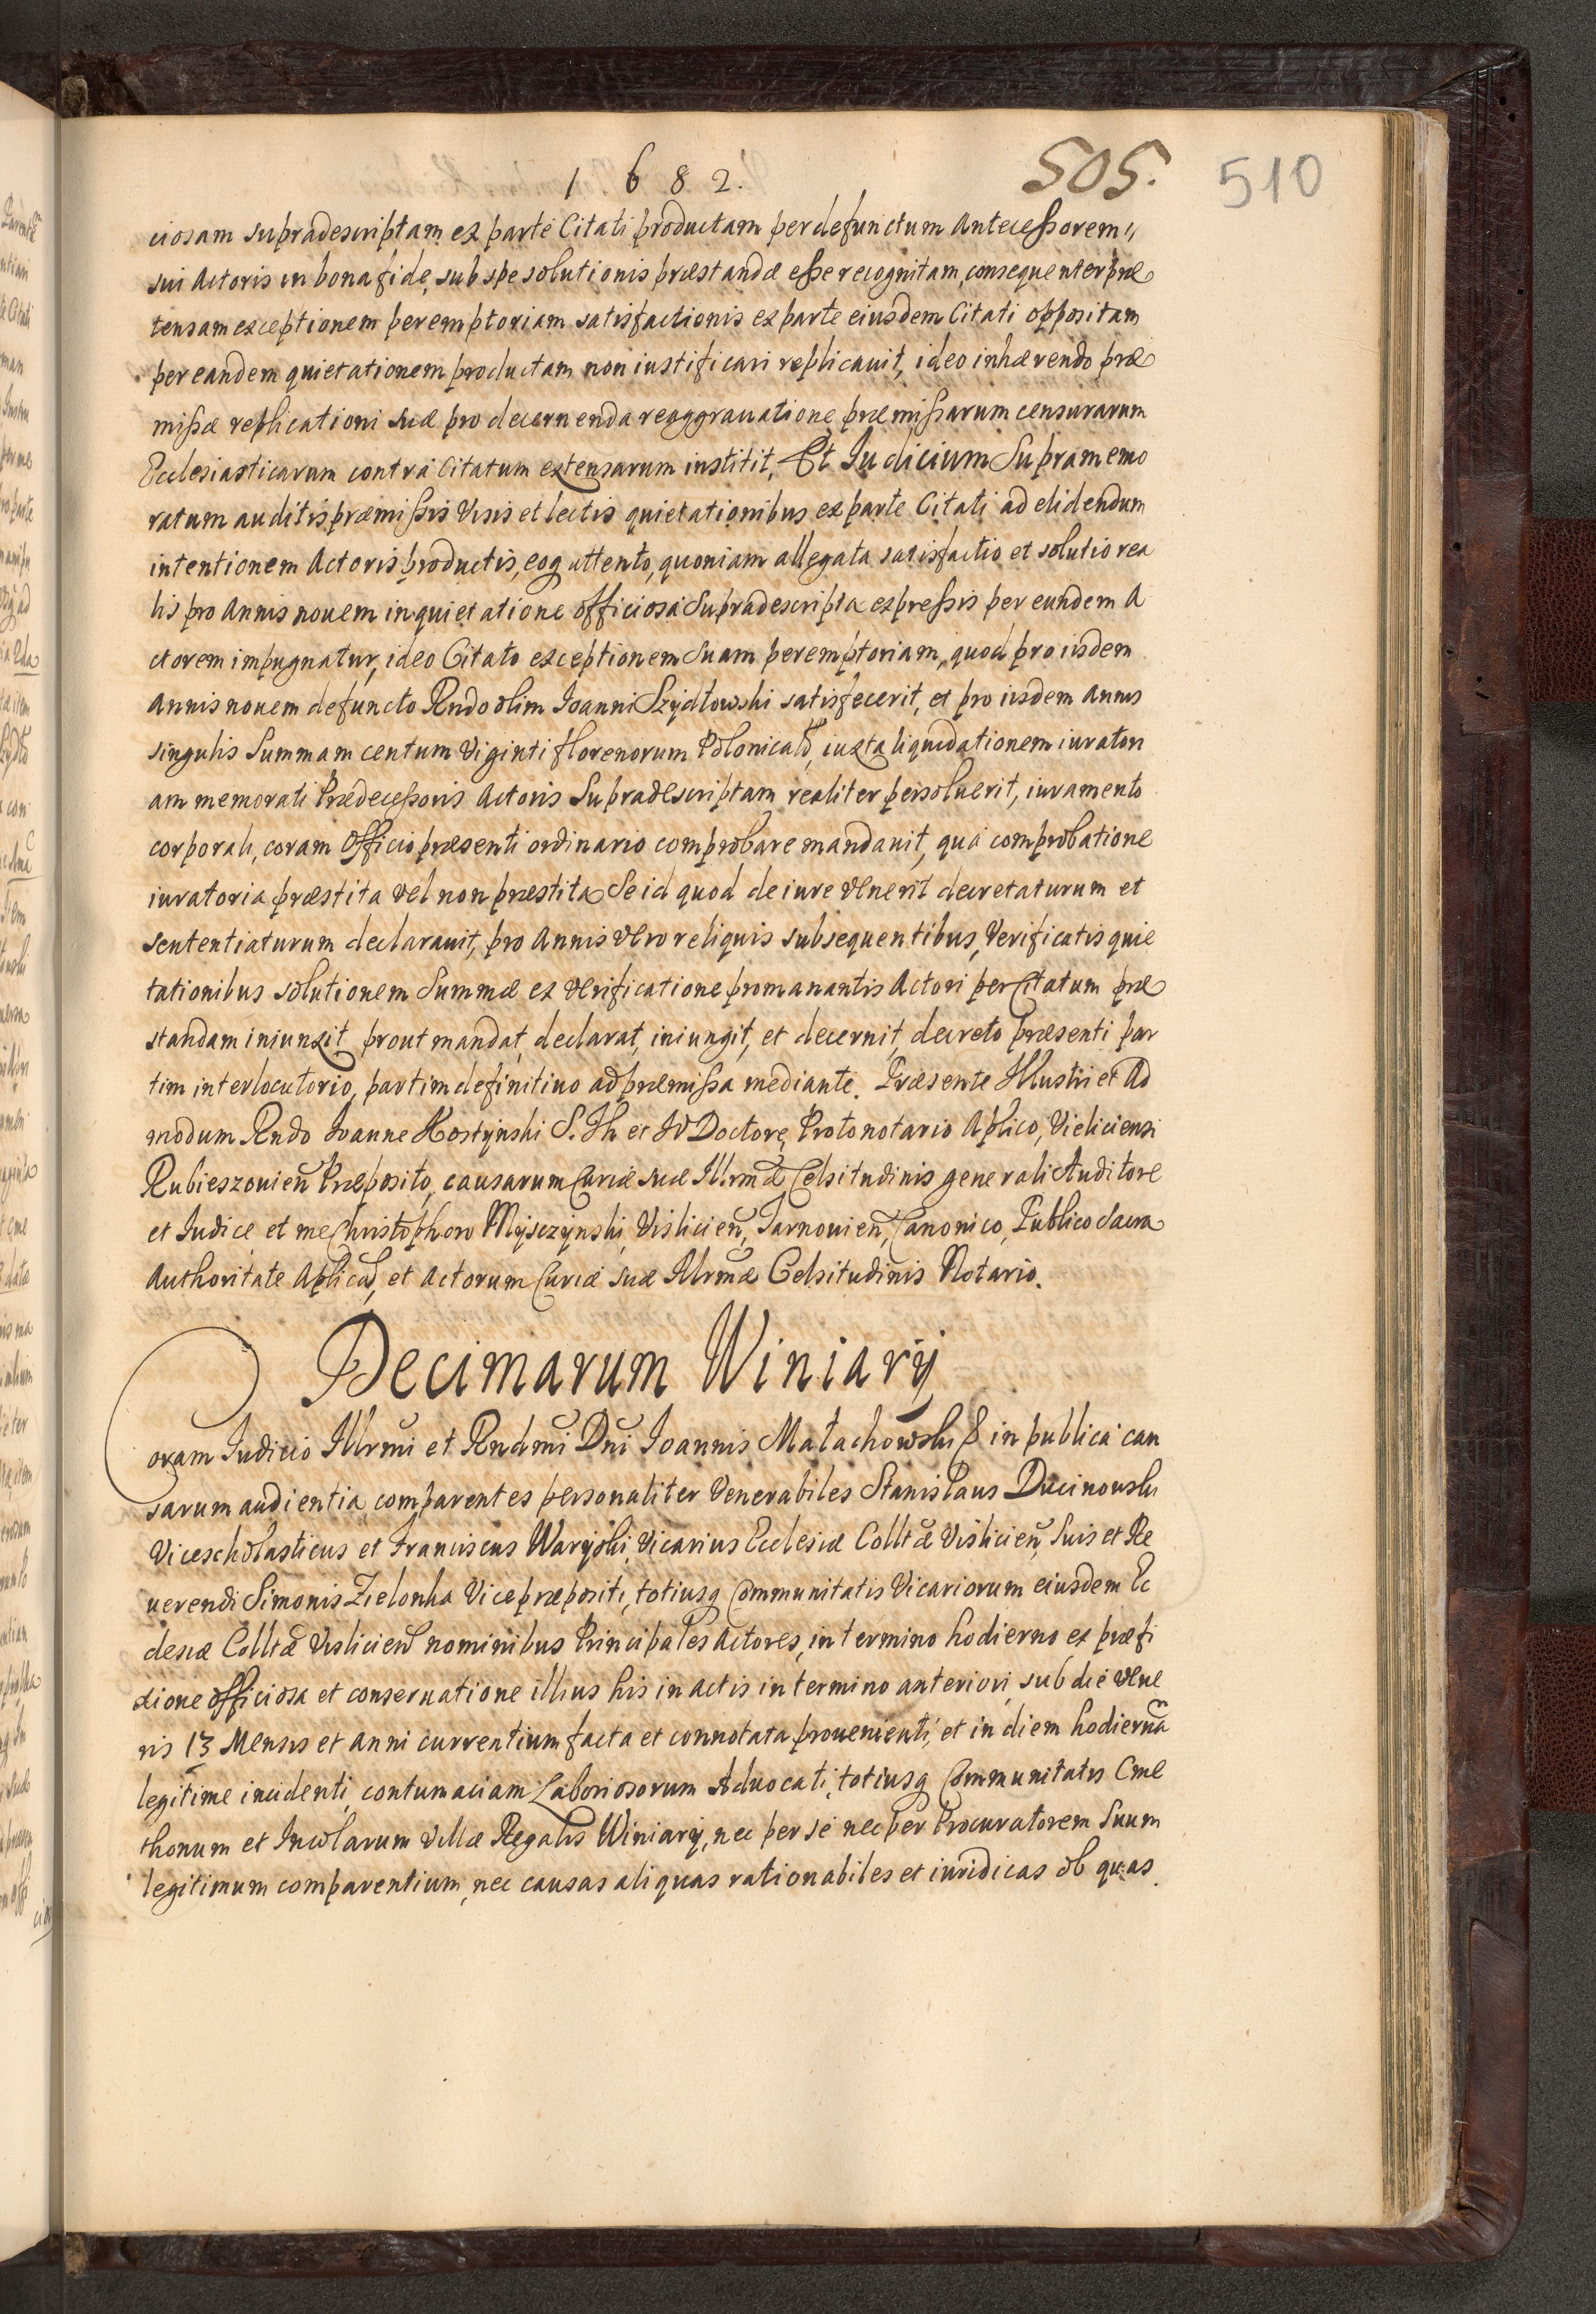 1682.
505.
510
ciosam supradescriptam ex parte Citati productam per defunctum Antecessorem
sui Actoris in bona fide, sub spe solutionis præstandæ esse recognitam, consequenter præ
tensam exceptionem peremptoriam satisfactionis ex parte eiusdem Citati oppositam
per eandem quietationem productam non iustificari replicauit, ideo inhærendo præ
missæ replicationi suæ pro decernenda reaggrauatione præmissarum censurarum
Ecclesiasticarum contra Citatum extensarum institit, Et Iudicium Supramemo
ratum auditis præmissis Visis et lectis quietationibus ex parte Citati ad elidendum
intentionem Actoris productis, eoq attento, quoniam allegata satisfactio et solutio rea
lis pro Annis nouem in quietatione officiosa Supradescripta expressis per eundem A
ctorem impugnatur, ideo Citato exceptionem Suam peremptoriam, quod pro iisdem
Annis nouem defuncto Rndo olim Ioanni Szydłowski satisfecerit, et pro iisdem Annis
singulis Summam centum Viginti florenorum Polonical, iuxta liquidationem iuratori
am memorati Prædecessoris Actoris Supradescriptam realiter persoluerit, iuramento
corporali, coram Officio præsenti ordinario comprobare mandauit, qua comprobatione
iuratoria præstita vel non præstita Se id quod de iure venerit decretaturum et
sententiaturum declarauit, pro Annis vero reliquis subsequentibus, Verificatis quie
tationibus solutionem Summæ ex verificatione promanantis Actori per Citatum præ
standam iniunxit prout mandat, declarat, iniungit, et decernit, decreto præsenti par
tim interlocutorio, partim definitiuo ad præmissa mediante. Præsente Illustri et Ad
modum Rndo Ioanne Kostynski S. Th et IV Doctore, Protonotario Aplico, Vieliciensi
Rubieszouien Præposito, causarum Curiæ suæ Illrmæ Celsitudinis generali Auditore
et Iudice et me Christophoro Mysczynski, Vislicien, Tarnouien, Canonico, Publico Sacra
Authoritate Aplica, et Actorum Curiæ suæ Illrmæ Celsitudinis Notario.
Decimarum Winiary
Coram Iudicio Illrmi et Rndmi Dni Ioannis Małachowski in publica cau
sarum audientia comparentes personaliter Venerabiles Stanislaus Ducinowski
Vicescholasticus et Franciscus Waryski, Vicarius Ecclesiæ Colltæ Vislicien, Suis et Re
uerendi Simonis Zielonka Vicepræpositi, totiusq Communitatis Vicariorum eiusdem Ec
clesiæ Colltæ Vislicien nominibus Principales Actores, in termino hodierno ex præfi
xione officiosa et conseruatione illius his in actis in termino anteriori, sub die vene
ris 13 Mensis et anni currentium facta et connotata prouenienti, et in diem hodierna
legitime incidenti, contumaciam Laboriosorum Aduocati, totiusq Communitatis Cme
thonum et Incolarum Villæ Regalis Winiary, nec per se nec per Procuratorem Suum
legitimum comparentium, nec causas aliquas rationabiles et iuridicas ob quas